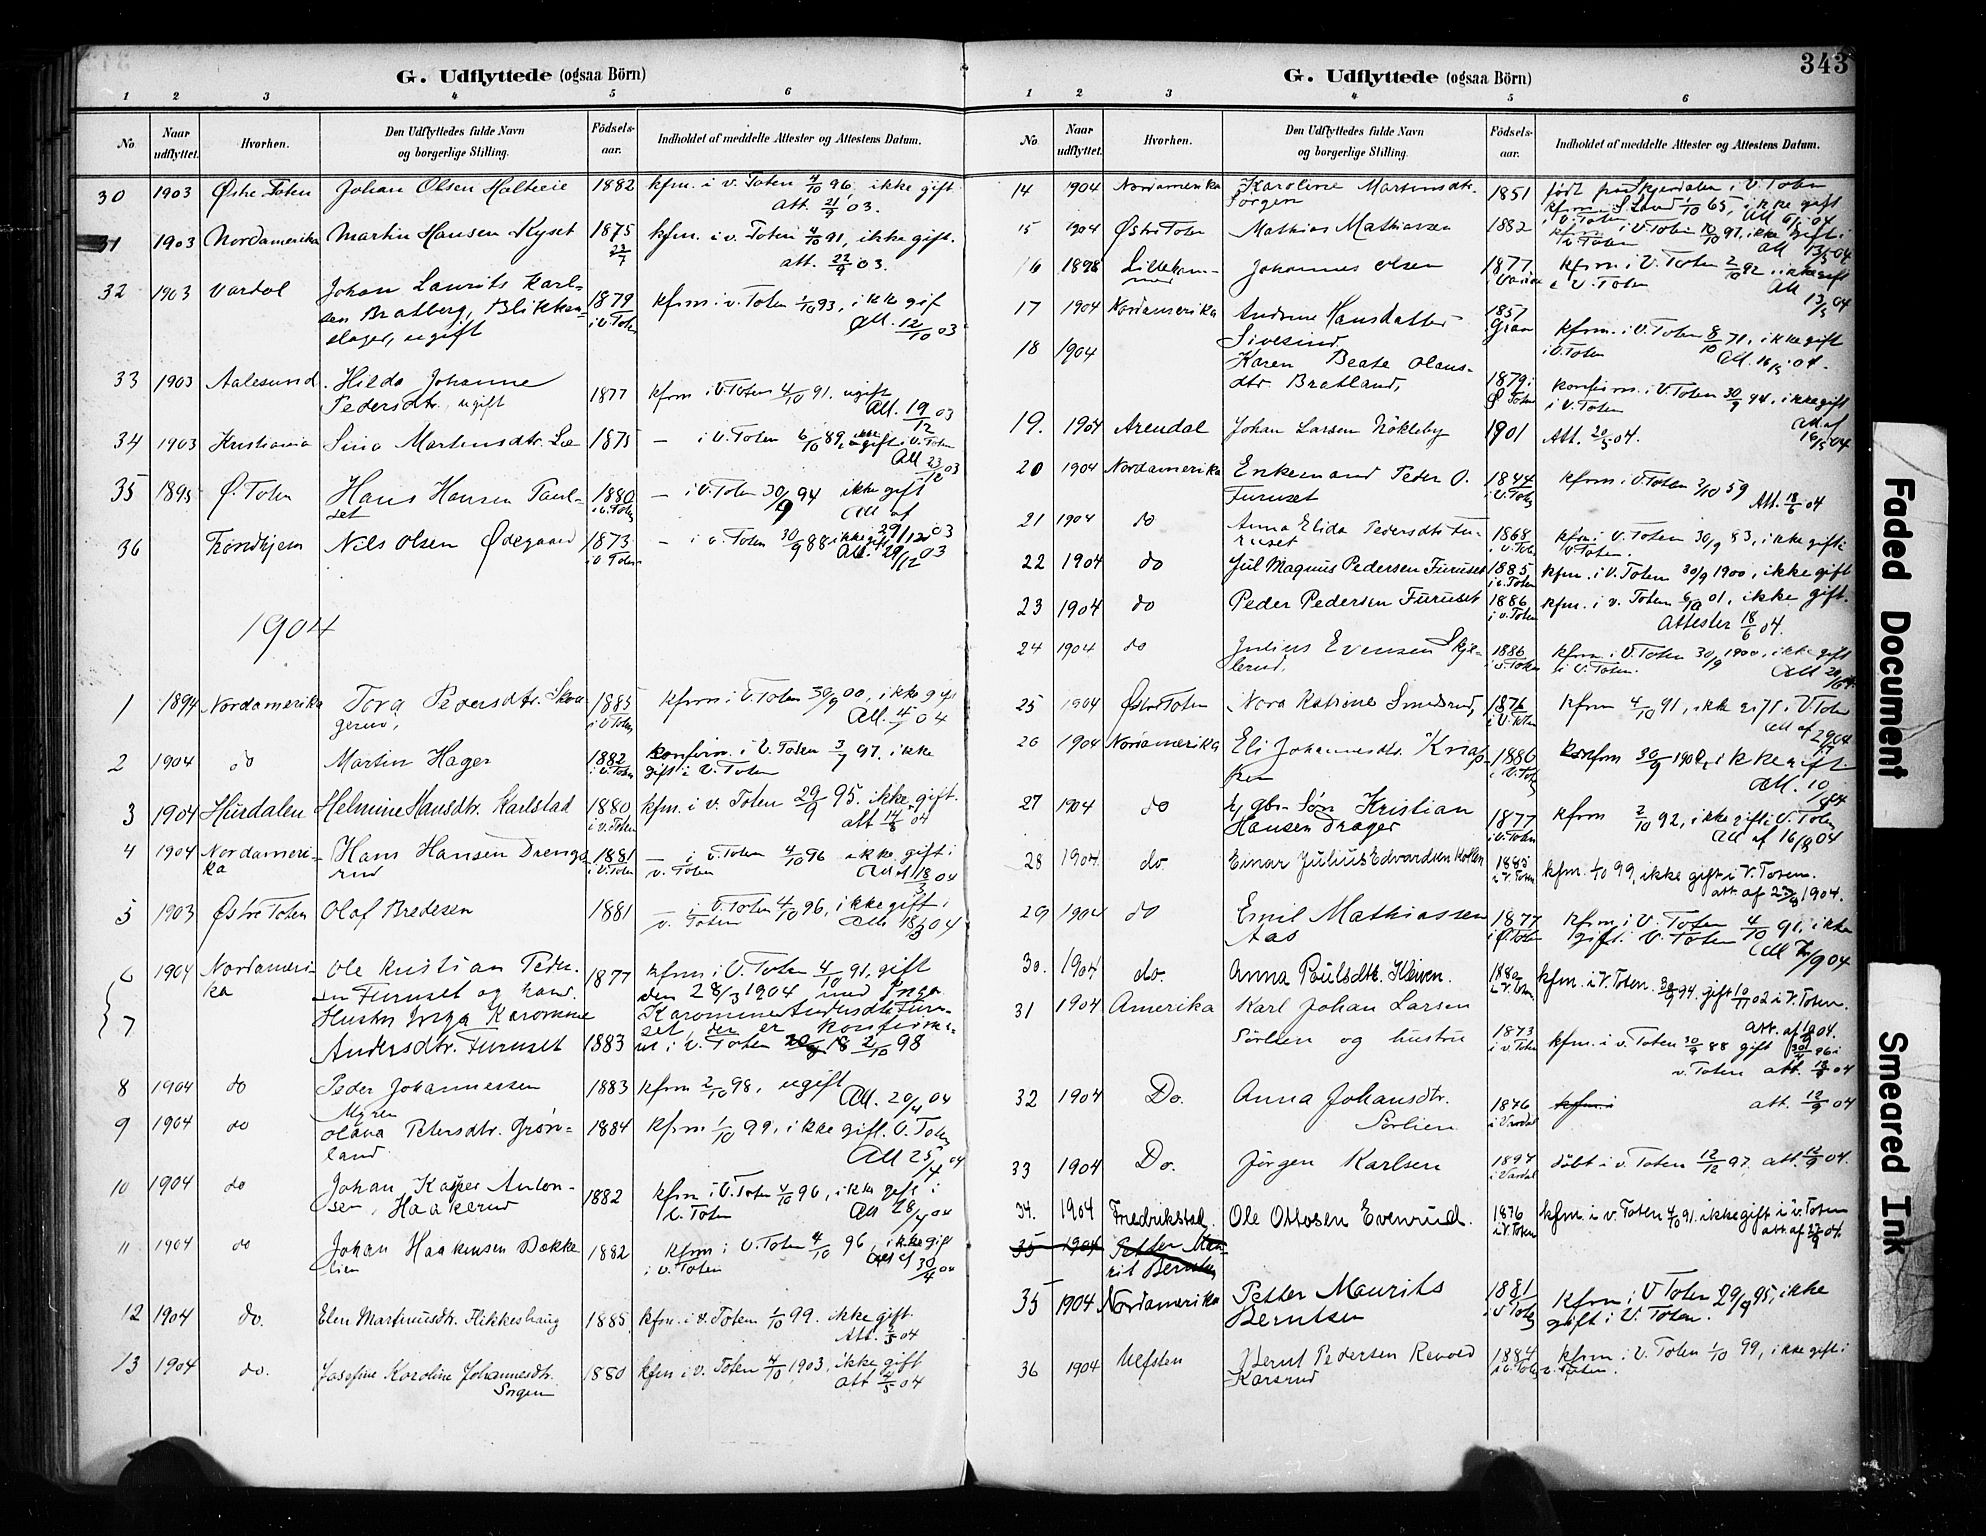 343
G. Udflyttede (ogsaa Börn)
1 2 3 4 5 6
No Naar udflyttet. Hvorhen. Den Udflyttedes fulde Navn og borgerlige Stilling. Födsels-aar. Indholdet af meddelte Attester og Attestens Datum.
30 1903 Østre Toten Johan Olsen 1882 kfm. i v. Toten 4/10 96, ikke gift
att. 21/9 03.
31 1903 Nordamerika Martin Hansen Kyset 1875 kfm. i v. Toten 4/10 91, ikke gift.
att. 22/9 03.
32 1903 Vardal Johan Laurits Karl-
sen Bratberg, Blikken- 1879 kfrm i v. Toten 1/10 93, ikke gif
slager, ugift i V. Toten Att. 12/10 03
33 1903 Aalesund. Hilda Johanne
Pedersdtr. ugift 1877 kfrm i V. Toten 4/10 91. ugift
Att. 19/12 03
34 1903 Kristiania Sina Martinsdtr. 1875 — i V. Toten 6/10 89, ikke gift i V. Toten
Att 23/12 03
35 1895 Ø. Toten Hans Hansen Paul-
set 1880 i V. Toten — i V. Toten 30/9 94 ikke gift
Att af 29/12 03
36 Trondhjem Nils Olsen Ødegaard 1873 i V. Toten — i v. Toten 30/9 88 ikke gift
Att. 29/12 03
1904
1 1894 Nordamerika Tora Pedersdtr. Skou
gerud, 1885 i V. Toten kfrm i V. Toten 30/9 00, ikke gift
Att. 04
2 1904 do Martin Hager 1882 i V. Toten konfirm. i V. Toten 97. ikke
gift i V. Toten
3 1904 Hurdalen Helmine Hansdtr. Karlstad 1880 i v. Toten kfm. i v. Toten 29/9 95. ikke gift.
att 04
4 1904 Nordameri-
ka Hans Hansen Drengs
rud 1881 i V. Toten — i v. Toten 4/10 96 ikke gift i
v. Toten Att af 18/3 04
5 1903 Østre Toten Olaf Bredesen 1881 — i V. Toten 4/10 96, ikke gift i
v. Toten Att 18/3 04
6 1904 Nordameri-
ka Ole Kristian Peder-
sen Furuset og hans 1877 kfrm i V. Toten 4/10 91, gift
den 28/3 1904 med Inga
7 Hustru Inga Karomine Karomine Andersdtr Furu-
set, der er konfirme-
Andersdtr. Furuset 1883 ret i V. Toten 2/10 98
8 1904 do Peder Johannessen
Myren 1883 kfrm 2/10 98, ugift
Att. 20/4 04
9 1904 do Olava Petersdtr. Grøn-
land 1884 kfrm 1/10 99, ikke gift. V. Toten
Att 25/4 04
10 1904 do Johan Kasper Anton-
sen, Haakerud 1882 kfrm i V. Toten 4/10 96, ikke gift i
V. Toten Att 28/4 04
11 1904 do Johan Haakensen Bakke
lien 1882 kfrm i V. Toten 4/10 96, ikke gift
i v. Toten Att af 30/4 04
12 1904 do. Elen Martinusdtr. Flikkeshaug 1885 kfm. i v. Toten 1/10 99. ikke gift
Att. 04
13 1904 do. Josefine Karoline Johannesdtr.
Sorgen 1880 kfm i v. Toten 4/10 1903, ikke gift
att 04
G. Udflyttede (ogsaa Börn)
1 2 3 4 5 6
No Naar udflyttet. Hvorhen. Den Udflyttedes fulde Navn og borgerlige Stilling. Födsels-aar. Indholdet af meddelte Attester og Attestens Datum.
14 1904 Nordamerika Karoline Martinsdtr.
Sorgen 1851 født i V. Toten
kfrm. i S. Land 1/10 65, ikke gift
i V. Toten Att 04
15 1904 Østre Toten Mathias Mathiassen 1882 kfm i V. Toten 10/10 97, ikke gift i
v. Toten Att 13/5 04
16 1898 Lilleham-
mer Johannes Olsen 1877 kfrm. i V. Toten 2/10 92, ikke gift
i V. Toten Att 13/5 04
17 1904 Nordamerika Andrine Hansdatter
Sivesind 1857 Gran kfrm. i V. Toten 8/10 71, ikke gift
i V. Toten Att. 16/5 04.
18 1904 Karen Beate Olaus-
dtr. Bratland, 1879 i Ø. Toten konfirm. i V. Toten 30/9 94, ikke gift
i V. Toten Att af 16/5 04
19. 1904 Arendal Johan Larsen Nökleby 1901 Att. 20/5 04.
20 1904 Nordamerika Enkemand Peder O.
Furuset 1844 i V. Toten kfrm. i V. Toten 2/10 59
Att. 18/6 04
21 1904 do Anna Elida Pedersdtr Fu-
ruset 1868 i V. Toten kfm. i V. Toten 30/9 83, ikke gift i
V. Toten.
22 1904 do Jul Magnus Pedersen Furuset 1885 i v. Toten kfm. i V. Toten 30/9 1900, ikke gift
23 1904 do Peder Pedersen Furuset 1886 i v. Toten kfm. i v. Toten 6/10 01, ikke gift.
Attester 18/6 04.
24 1904 do Julius Evensen Skje-
lerud, 1886 i v. Toten kfm. i V. Toten 30/9 1900, ikke gift
i V. Toten. Att 04
25 1904 Østre Toten Nora Katrine Smedsrud, 1876 i V. Toten kfrm 4/10 91, ikke gift i V. Toten
Att af 04
26 1904 Nordamerika Eli Johannesdtr.
1886 i V. Toten konfrm 30/9 ikke gift.
Att. 04
27 1904 do Hansen Kristian
Drager 1877 i v. Toten kfrm 2/10 92, ikke gift i V. Toten
Att af 16/8 04
28 1904. do. Einar Julius Edvardsen 1885 i V. Toten kfm. 1/10 99, ikke gift i V. Toten.
att. af 1904.
29 1904 do Emil Mathiassen
Aas 1877 i Ø. Toten kfrm i V. Toten 4/10 91, ikke
gift i V. Toten Att 04
30. 1904 do. Anna Poulsdtr. 1880 i V. Toten. kfm. i V. Toten. 30/9 94. gift 02 i V. Toten.
31 1904 Amerika Karl Johan Larsen
Sörlien og hustru 1873 i v. Toten kfm. i v. Toten 30/9 88 gift 96 i
v. Toten att. 04
32 1904 Do. Anna Johansdtr.
Sörlien 1876 i Vardal kfm. i att. 12/9 04
33 1904 Do. Jörgen Karlsen 1894 i Vardal döbt i v. Toten 12/12 97. att. 12/9 04.
34. 1904 Fredrikstad. Ole Ottosen Evenrud. 1876 i V. Toten kfm. i v. Toten 4/10 91. ikke gift i v. Toten
att. af 04
35 1904 Petter Mau-
rits Berntsen
35 1904 Nordamerika Petter Maurits
Berntsen 1881 i V. Toten kfrm i V. Toten 29/9 95, ikke
gift i V. Toten.
36 1904 Vefsten Bernt Pedersen
Karsrud 1884 i v. Toten kfrm. i V. Toten 1/10 99, ikke gift i
v. Toten.
Faded Document
Smeared Ink